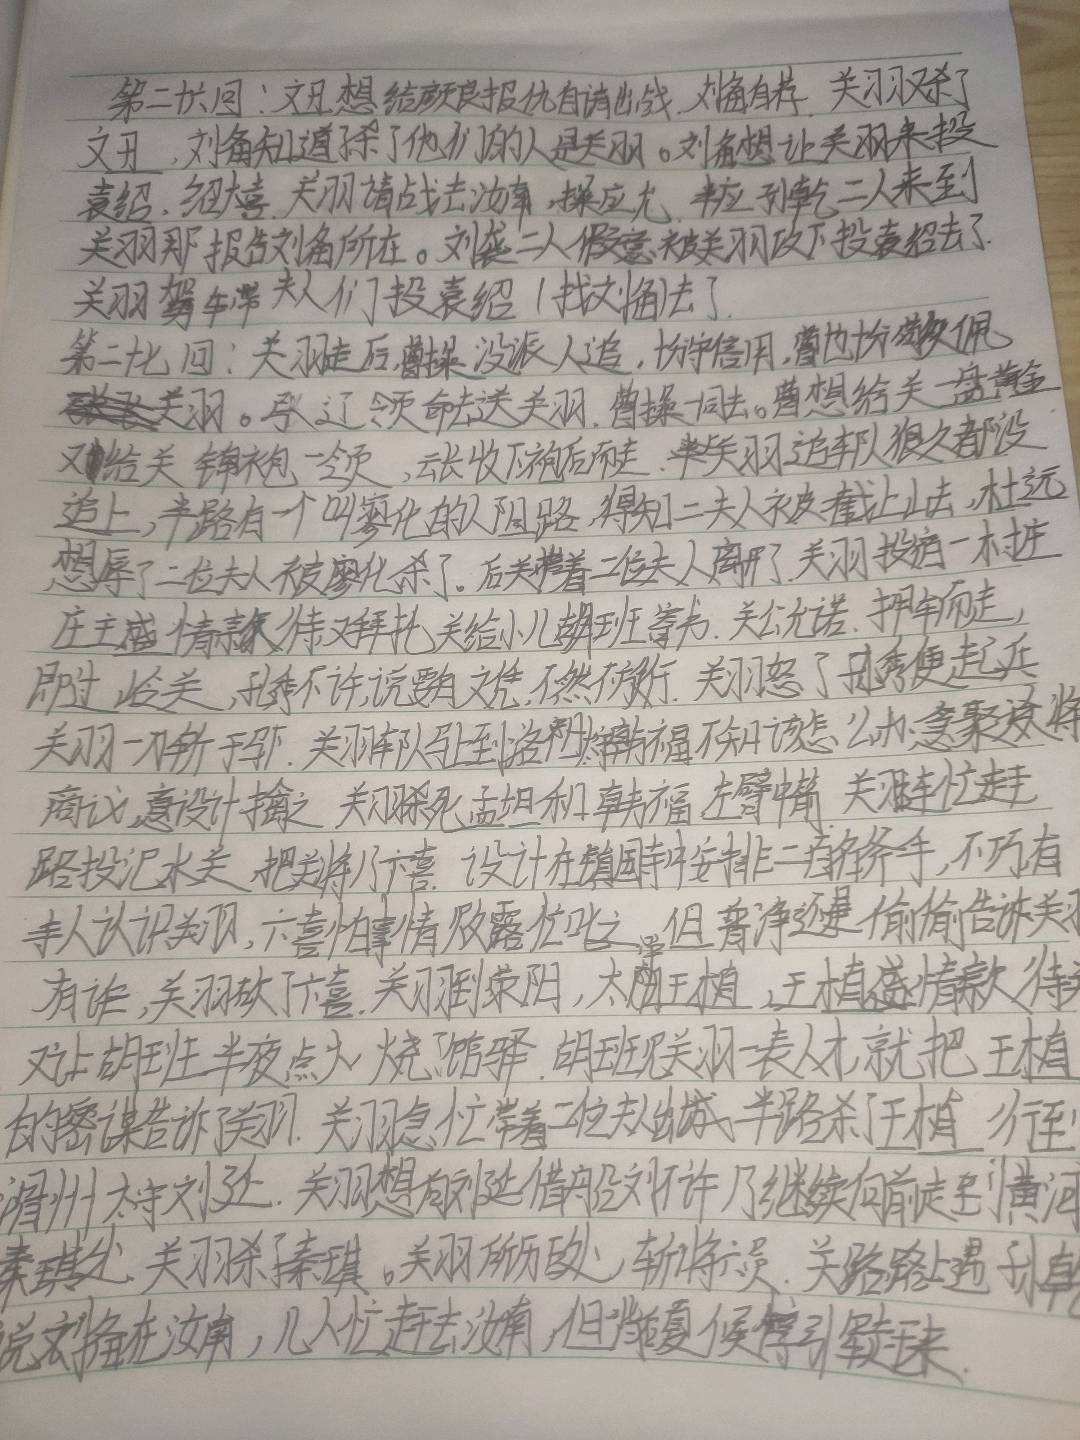 第二十六回：文丑想给颜良报仇自请出战.刘备自荐.关羽又杀了
文丑，刘备知道了杀了他们的人是关羽。刘备想让关羽来投
袁绍，绍大喜.关羽请战去汝南，操应允.半夜孙乾二人来到
关羽那报告刘备所在。刘龚二人假意被关羽攻下投袁绍去了.
关羽驾车带夫人们投袁绍(找刘备)去了.
第二十七回：关羽走后,曹操没派人追，十分守信用，曹也十分敬佩
关羽。张辽领命去送关羽.曹操一同去。曹想给关一盘黄金
又给关锦袍一领，云长收下袍后而走.关羽追车队很久都没
追上，半路有一个叫廖化的人阻路，得知二夫人被截上山去，杜远
想辱了二位夫人被廖化杀了。后关带着二位夫人离开了.关羽投宿一村庄
庄主盛情款待又拜托关给小儿胡班寄书.关公允诺.押车而走，
即过岭关，孔秀不许,说要有文凭,不然不放行.关羽怒了孔秀便起兵
关羽一刀斩于马下.关羽车队到洛阳韩福不知该怎么办.急聚众将
商议,意设计擒之 关羽杀死孟坦和韩福 左臂中箭 关羽连忙赶
路投汜水关,把关将卞喜.设计在镇国寺中安排二百名斧手，不巧有
寺人认识关羽，卞喜怕事情败露忙叱之，但普净还是偷偷告诉关羽
有诈，关羽砍了卞喜.关羽到荥阳，太守王植，王植盛情款待关
又让胡班半夜点火烧了馆驿.胡班见关羽一表人才,就把王植
的密谋告诉了关羽.关羽急忙带着二位夫人出城,半路杀了王植 行至
滑州太守刘延.关羽想向刘延借船只刘不许了继续向前走至黄河
秦琪处.关羽杀了秦琪。关羽所历处,斩将六员.关路路上遇孙乾
说刘备在汝南，几人忙赶去汝南，但夏侯惇引军赶来.